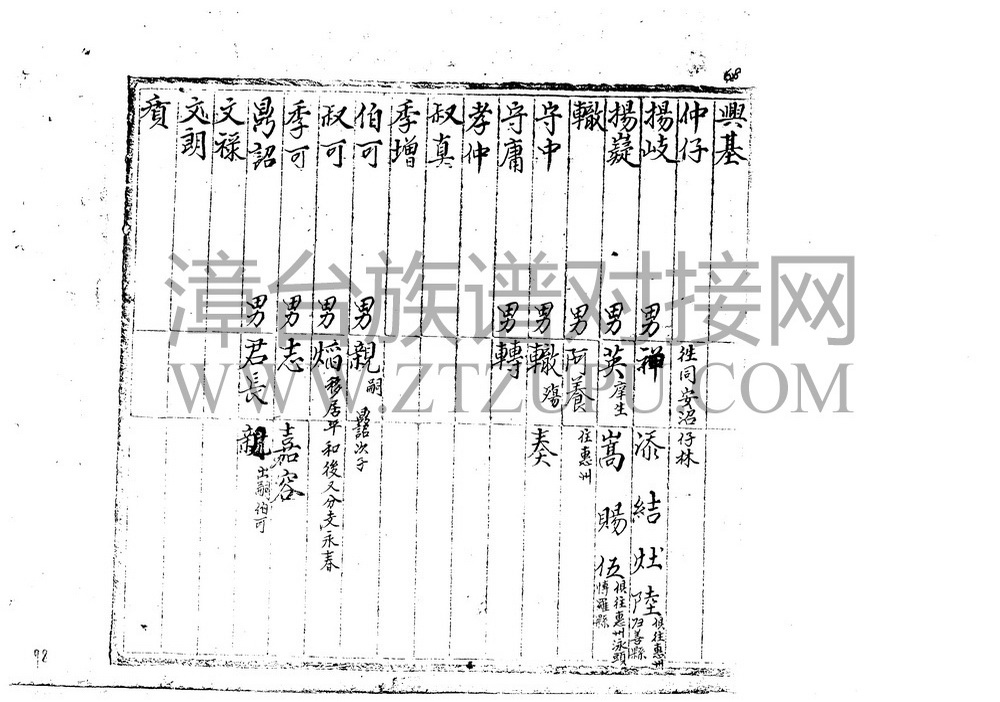 興基
仲仔 往同安沼仔林
揚岐 男禅 添 結 灶 陸 俱往惠州归善縣
揚嶷 男英庠生 嵩 賜 伍 俱往惠州泳頭博羅縣
轍 男阿養 往惠州
守中 男轍殤 奏
守庸 男轉
孝仲
叔真
季增
伯可 男親嗣 鼎詔次子
叔可 男熖移居平和後又分支永春
季可 男志 嘉容
鼎詔 男君長 親出嗣伯可
文祿
文朗
賓
漳台族谱对接网
WWW.ZTZUPU.COM
92